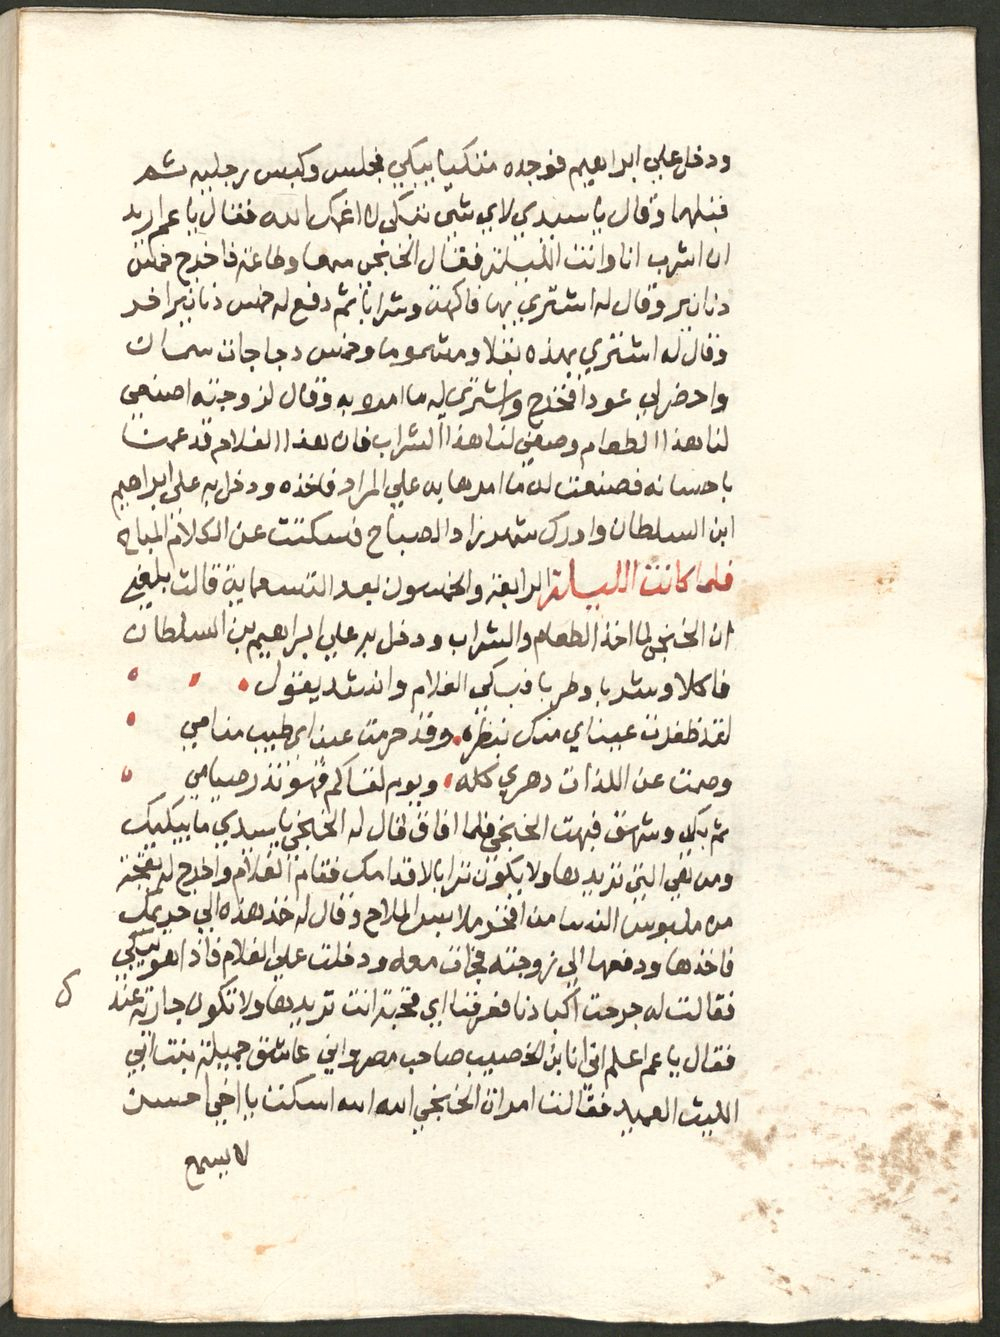 ودخل علي ابراهيم فوجده متكيا يبكي فجلس وكبس رجليه ثم
قبلهما وقال يا سيدي لاي شي تبكي لا اغمك الله فقال يا عم اريد
ان اشرب انا وانت الليلة فقال الخانجي سمعا وطاعة فاخرج خمس
دنانير وقال له اشتري بها فاكهة وشرابا ثم دفع له خمس دنانير اخر
وقال له اشتري بهذه نقلا ومشموما وخمس دجاجات سمان
واحضر لي عودا فخرج واشتري له ما امره به وقال لزوجته اصنعي
لنا هذا الطعام وصفي لنا هذا الشراب فان هذا الغلام قد عمنا
باحسانه فصنعت له ما امرها به علي المراد فاخذه ودخل به علي ابراهيم
ابن السلطان وادرك شهرزاد الصباح فسكتت عن الكلام المباح
فلما كانت الليلة الرابعة والخمسون بعد التسعماية قالت بلغني
ان الخانجي لما اخذ الطعام والشراب ودخل به علي ابراهيم بن السلطان
فاكلا وشربا وطربا فبكي الغلام وانشد يقول
لقد ظفرت عيناي منك بنظرة وقد حرمت عيناي طيب منامي
وصمت عن اللذات دهري كله ويوم لقاكم فهو نذر صيامي
ثم بكي وشهق فبهت الخانجي فلما افاق قال له الخانجي يا سيدي ما يبكيك
ومن هي التي تريدها ولا يكون ترابا لاقدامك فقام الغلام واخرج له بقجة
من ملبوس النسا من افخر ملابس الملاح وقال له خذ هذه الي حريمك
فاخذها ودفعها الي زوجته فجات معه ودخلت علي الغلام فاذا هو يبكي
فقالت له جرحت اكبادنا فعرفنا اي محبة انت تريدها ولا تكون جارية عندك
فقال يا عم اعلم اني انا بن الخصيب صاحب مصر واني عاشق جميلة بنت ابي
الليث العميد فقالت امراة الخانجي الله الله اسكت يا اخي احسن
لا يسمع